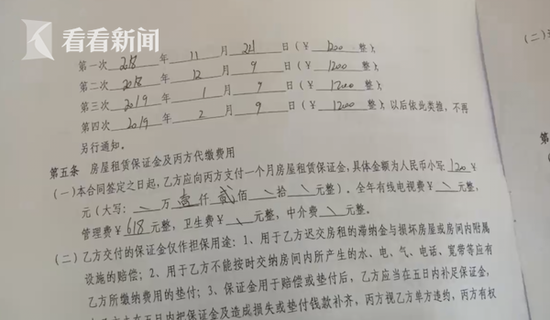 看看新闻
第一次 2018 年 11 月 24 日（¥ 1200 整）；
第二次 2018 年 12 月 9 日（¥ 1200 整）；
第三次 2019 年 1 月 9 日（¥ 1200 整）；
第四次 2019 年 2 月 9 日（¥ 1200 整）；以后依此类推，不再
另行通知。
第五条 房屋租赁保证金及丙方代缴费用
（一）本合同签定之日起，乙方应向丙方支付一个月房屋租赁保证金，具体金额为人民币小写 1200 ¥
元（大写：\ 万 壹 仟 贰 佰 \ 拾 \ 元整）。全年有线电视费¥ \ 元整，
管理费¥ 618 元整，卫生费¥ \ 元整，中介费 \ 元整。
（二）乙方交付的保证金仅作担保用途：1、用于乙方迟交房租的滞纳金与损坏房屋或房间内附属
设施的赔偿；2、用于乙方不能按时交纳房间内所产生的水、电、气、电话、宽带等应有
乙方所缴纳费用的垫付；3、保证金用于赔偿或垫付后，乙方应当在五日内补足保证金，
在五日内把保证金及造成损失或垫付钱款补齐，丙方视乙方单方违约，丙方有权
（二）
第